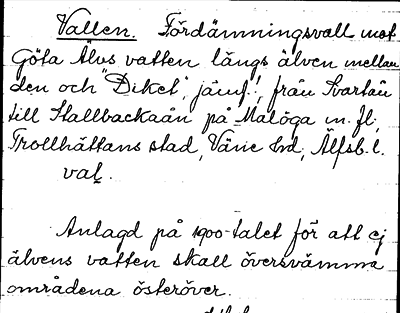 Vallen. Fördämningsvall mot
Göta Älvs vatten längs älven mellan
den och "Diket", jämf!, från Svartån
till Stallbackaån på Malöga m. fl.,
Trollhättans stad, Väne hd, Älfsb. l.
val.
Anlagd på 1900-talet för att ej
älvens vatten skall översvämma
områdena österöver.